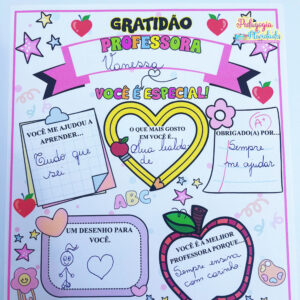 Pedagogia
GRATIDÃO
PROFESSORA
Vanessa
VOCÊ É ESPECIAL!
VOCÊ ME AJUDOU A
APRENDER...
Tudo que
sei
O QUE MAIS GOSTO
EM VOCÊ É...
Sua
de
OBRIGADO(A) POR...
A+
Sempre
me ajudar
ABC
UM DESENHO PARA
VOCÊ.
VOCÊ É A MELHOR
PROFESSORA PORQUE...
Sempre ensina
com carinho